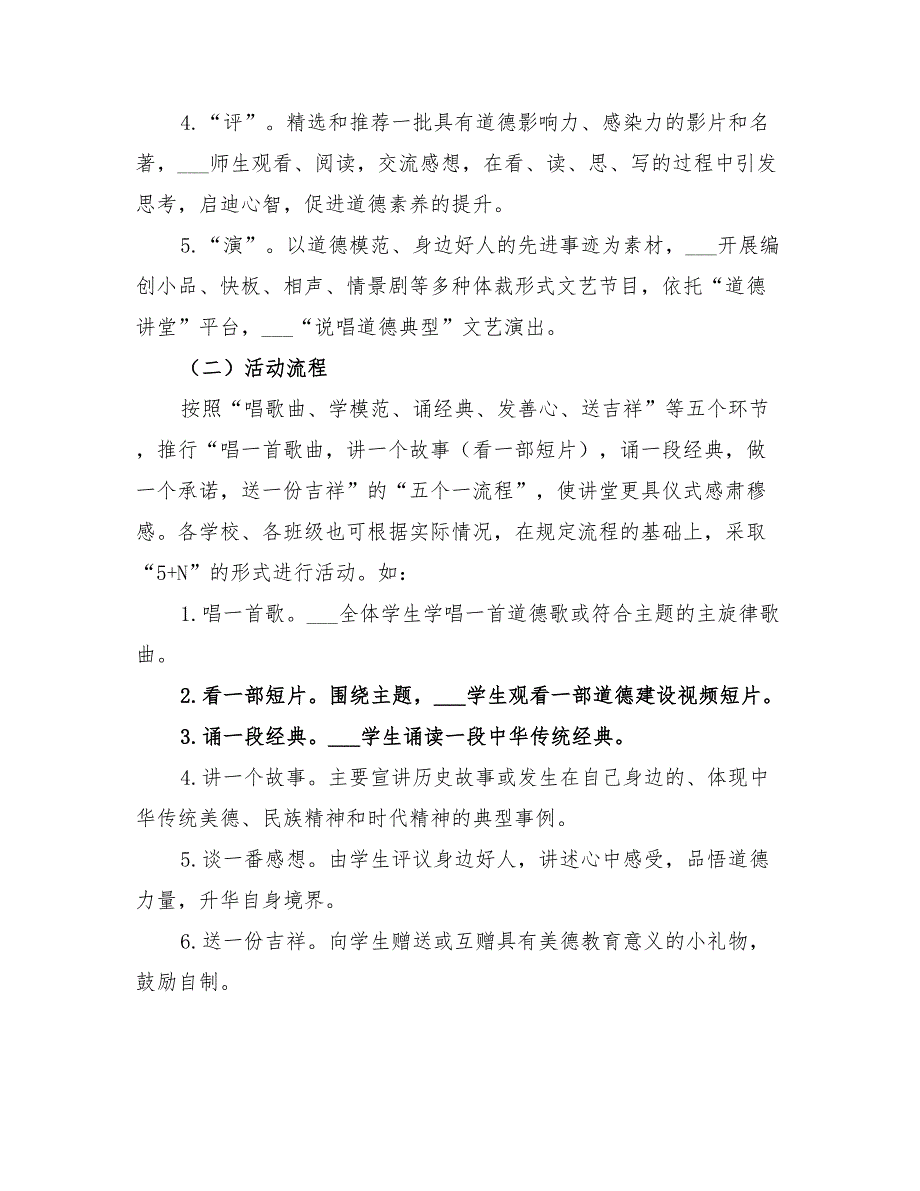 4.“评”。精选和推荐一批具有道德影响力、感染力的影片和名
著，___师生观看、阅读，交流感想，在看、读、思、写的过程中引发
思考，启迪心智，促进道德素养的提升。
5.“演”。以道德模范、身边好人的先进事迹为素材，___开展编
创小品、快板、相声、情景剧等多种体裁形式文艺节目，依托“道德
讲堂”平台，___“说唱道德典型”文艺演出。
（二）活动流程
按照“唱歌曲、学模范、诵经典、发善心、送吉祥”等五个环节
，推行“唱一首歌曲，讲一个故事（看一部短片），诵一段经典，做
一个承诺，送一份吉祥”的“五个一流程”，使讲堂更具仪式感肃穆
感。各学校、各班级也可根据实际情况，在规定流程的基础上，采取
“5+N”的形式进行活动。如：
1.唱一首歌。___全体学生学唱一首道德歌或符合主题的主旋律歌
曲。
2.看一部短片。围绕主题，___学生观看一部道德建设视频短片。
3.诵一段经典。___学生诵读一段中华传统经典。
4.讲一个故事。主要宣讲历史故事或发生在自己身边的、体现中
华传统美德、民族精神和时代精神的典型事例。
5.谈一番感想。由学生评议身边好人，讲述心中感受，品悟道德
力量，升华自身境界。
6.送一份吉祥。向学生赠送或互赠具有美德教育意义的小礼物，
鼓励自制。